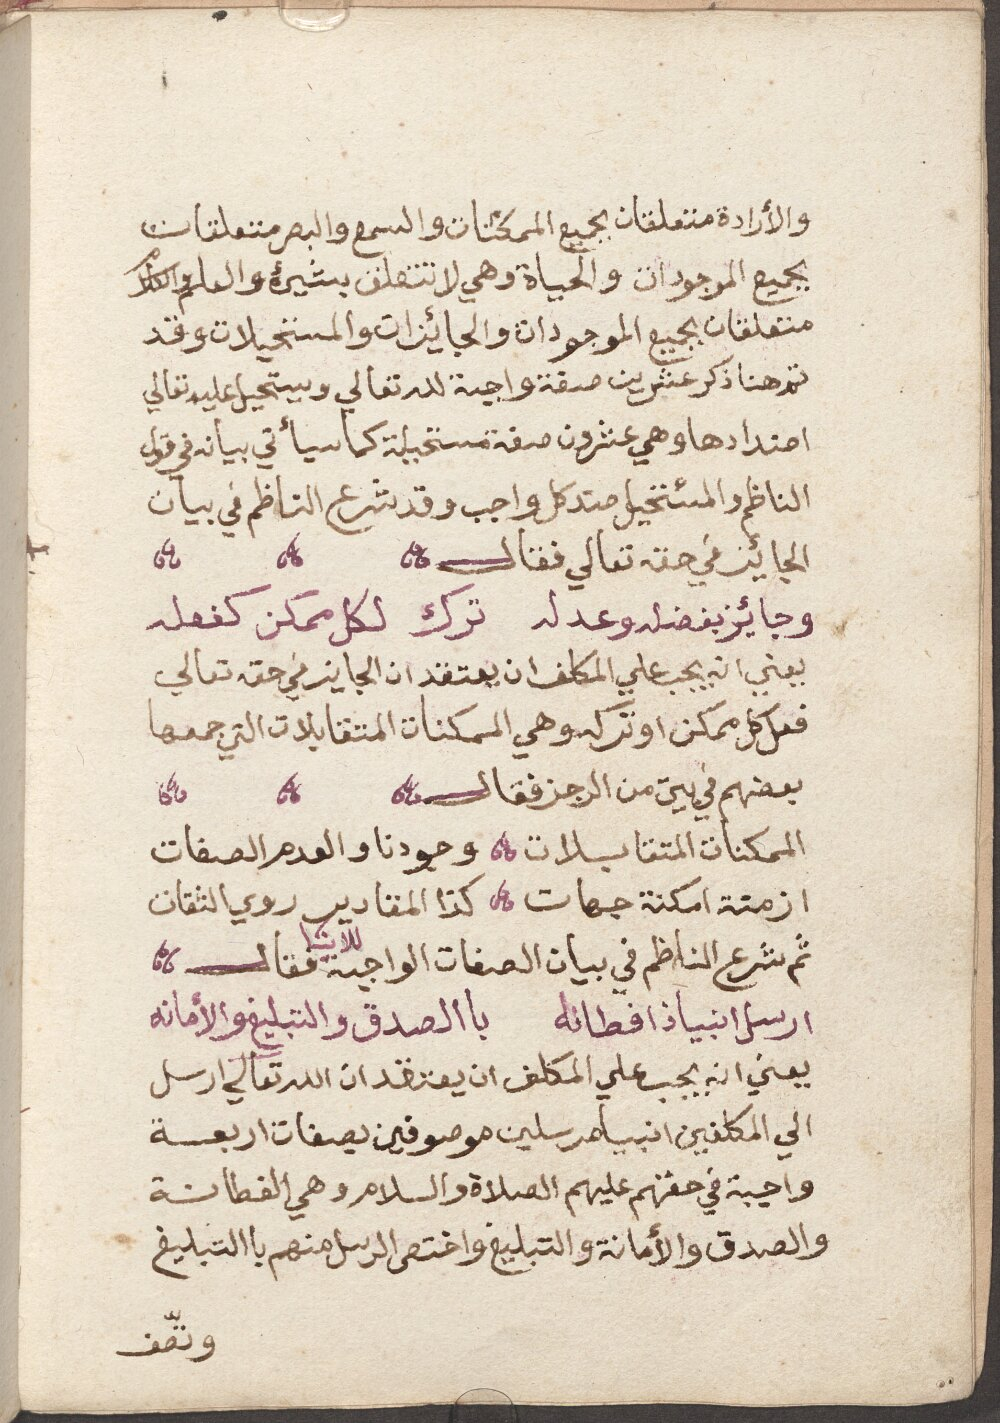 والأرادة متعلقان بجميع الممكنات والسمع والبصر متعلقات
بجميع الموجودات والحياة وهي لا تتعلق بشيء والعلم والكلام
متعلقان بجميع الموجودات والجائيزات والمستحيلات وقد
تم هنا ذكر عشرين صفة واجبة لله تعالي ويستحيل عليه تعالي
اضدادها وهي عشرون صفة مستحيلة كما سيأتي بيانه في قول
الناظم والمستحيل ضد كل واجب وقد شرع الناظم في بيان
الجائيز في حقه تعالي فقال
وجائيز بفضله وعدله ترك لكل ممكن كفعله
يعني انه يجب علي المكلف ان يعتقد ان الجايز في حقه تعالي
فعل كل ممكن او تركه وهي الممكنات المتقابلات التي جمعها
بعضهم في بيت من الرجز فقال
الممكنات المتقابلات وجودنا والعدم الصفات
ازمنة امكنة جهات كذا المقادير روي الثقات
ثم شرع الناظم في بيان الصفات الواجبة للانبيا فقال
ارسل انبيا ذا فطانه باالصدق والتبليغ والأمانه
يعني انه يجب علي المكلف ان يعتقد ان الله تعالي ارسل
الي المكلفين انبيا مرسلين موصوفين بصفات اربعة
واجبة في حقهم عليهم الصلاة والسلام وهي الفطانة
والصدق والأمانة والتبليغ واختص الرسل منهم باالتبليغ